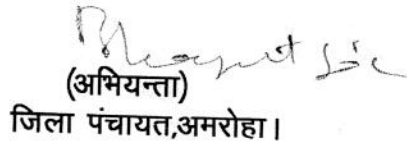 (अभियन्ता)
जिला पंचायत,अमरोहा।